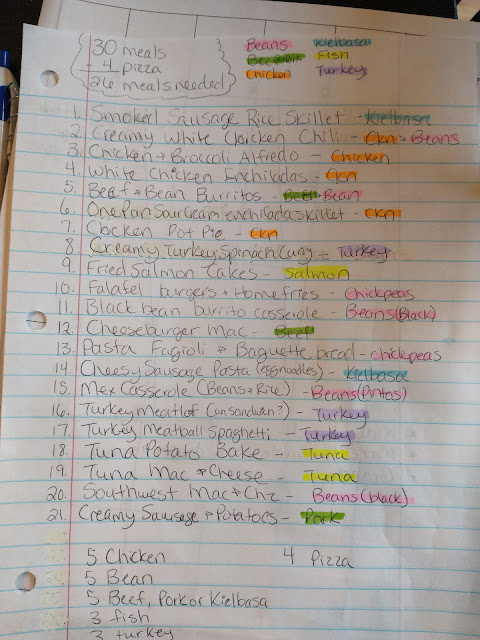 30 meals
- 4 pizza
26 meals needed
Beans Kielbasa
Fish
Chicken Turkey
1. Smoked Sausage Rice Skillet - Kielbasa
2. Creamy White Chicken Chili - Ckn + Beans
3. Chicken + Broccoli Alfredo - Chicken
4. White Chicken Enchiladas - Ckn
5. Beef + Bean Burritos - Beef + Bean
6. One Pan Sour Cream enchilada skillet - ckn
7. Chicken Pot Pie - Ckn
8. Creamy Turkey Spinach Curry - Turkey
9. Fried Salmon Cakes - Salmon
10. Falafel burgers + Homefries - Chickpeas
11. Black bean burrito casserole - Beans (Black)
12. Cheeseburger Mac - Beef
13. Pasta Fagioli + Baguette bread - chickpeas
14. Cheesy Sausage Pasta (eggnoodles) - Kielbasa
15. Mex Casserole (Beans + Rice) - Beans (Pintos)
16. Turkey Meatloaf (on sandwich?) - Turkey
17. Turkey Meatball Spaghetti - Turkey
18. Tuna Potato Bake - Tuna
19. Tuna Mac + Cheese - Tuna
20. Southwest Mac + Chz - Beans (black)
21. Creamy Sausage + Potatoes - Pork
5 Chicken 4 Pizza
5 Bean
5 Beef, Pork or Kielbasa
3 fish
3 turkey